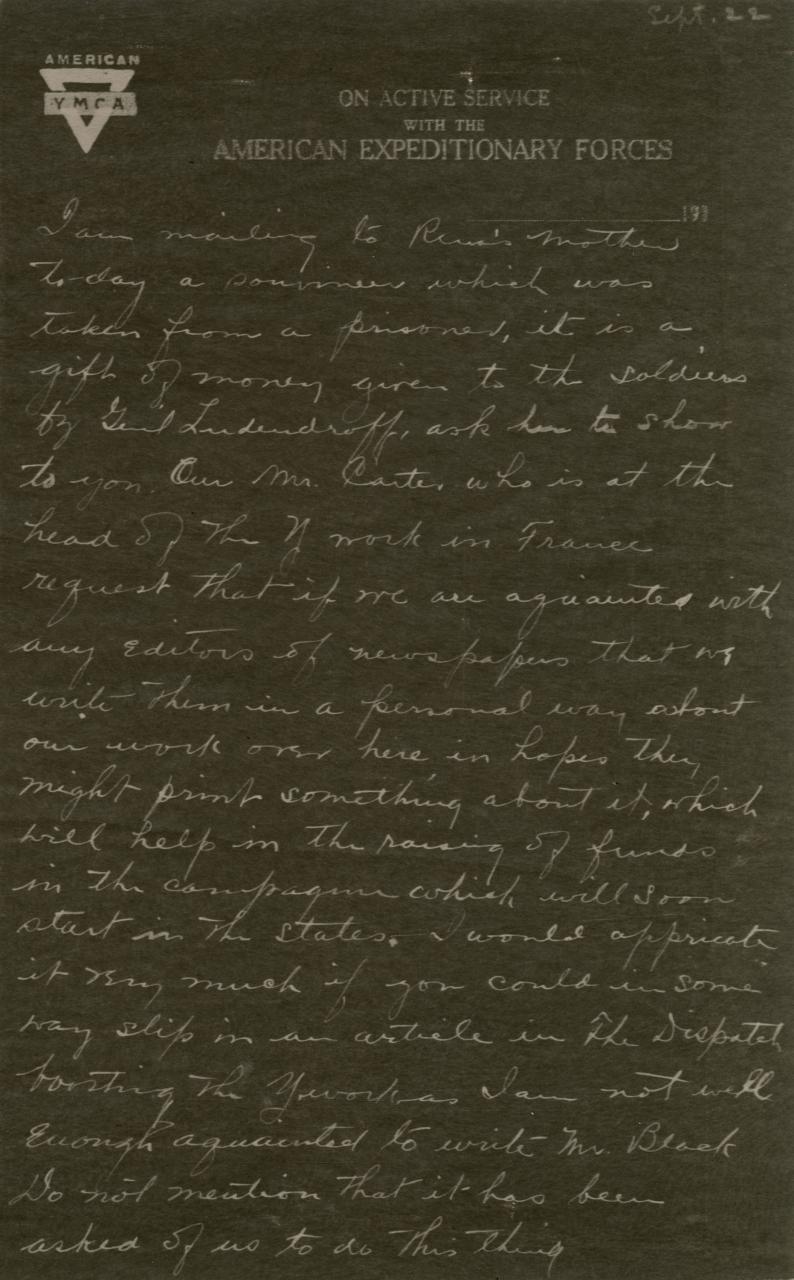 Sept. 22
AMERICAN
YMCA
ON ACTIVE SERVICE
WITH THE
AMERICAN EXPEDITIONARY FORCES
191
I am mailing to Rena's Mother
today a souvineer which was
taken from a prisoner, it is a
gift of money given to the soldiers
by Gen'l Ludendroff, ask her to show
to you. Our Mr. Carter who is at the
head of the Y work in France
request that if we are aquainted with
any Editors of newspapers that we
write them in a personal way about
our work over here in hopes they
might print something about it, which
will help in the raising of funds
in the campagine which will soon
start in the States. I would appricate
it very much if you could in some
way slip in an article in The Dispatch
boosting the Y work as I am not well
Enough aquainted to write Mr. Black
Do not mention that it has been
asked of us to do this thing